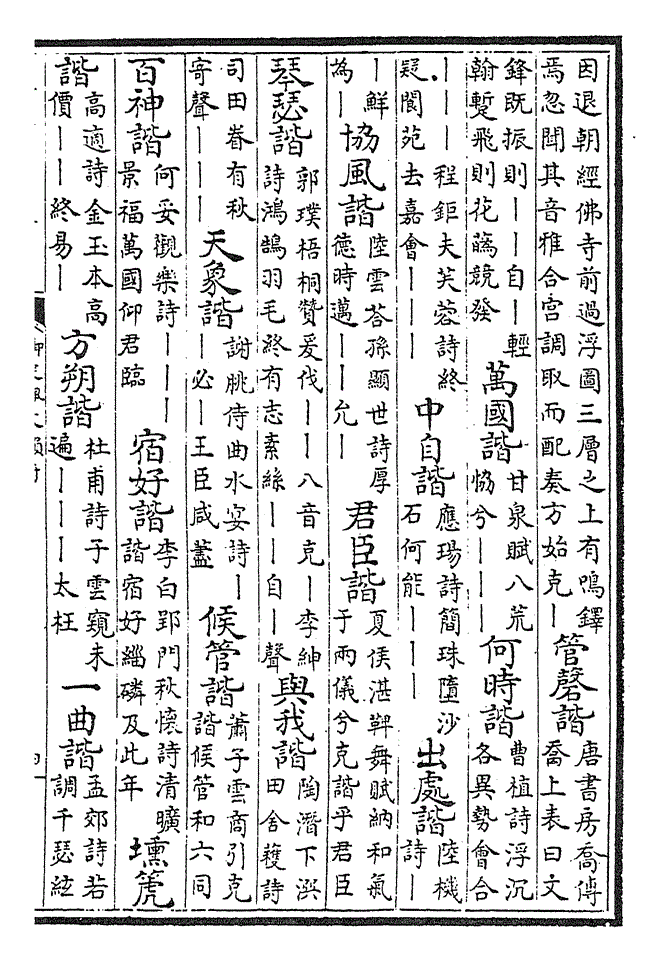 因退朝經佛寺前過浮圖三層之上有鳴鐸
焉忽聞其音雅合宮調取而配奏方始克｜
管磬諧
唐書房喬傳
喬上表曰文
鋒既振則｜｜自｜輕
翰蹔飛則花蘤競發
萬國諧
甘泉賦八荒
協兮｜｜｜
何時諧
曹植詩浮沉
各異勢會合
｜｜｜程鉅夫芙蓉詩終
疑閬苑去嘉會｜｜｜
中自諧
應瑒詩簡珠墮沙
石何能｜｜｜
出處諧
陸機
詩｜
｜鮮
為｜
協風諧
陸雲荅孫顯世詩厚
德時邁｜｜允｜
君臣諧
夏侯湛鞞舞賦納和氣
于兩儀兮克諧乎君臣
琴瑟諧
郭璞梧桐贊爰伐｜｜八音克｜李紳
詩鴻鵠羽毛終有志素絲｜｜自｜聲
與我諧
陶潛下潠
田舍穫詩
司田眷有秋
寄聲｜｜｜
天象諧
謝朓侍曲水宴詩｜
｜必｜王臣咸藎
候管諧
蕭子雲商引克
諧候管和六同
百神諧
何妥觀樂詩｜｜｜
景福萬國仰君臨
宿好諧
李白郢門秋懷詩清曠
諧宿好緇磷及此年
壎箎
諧
高適詩金玉本高
價｜｜終易｜
方朔諧
杜甫詩子雲窺未
遍｜｜｜太枉
一曲諧
孟郊詩若
調千瑟絃